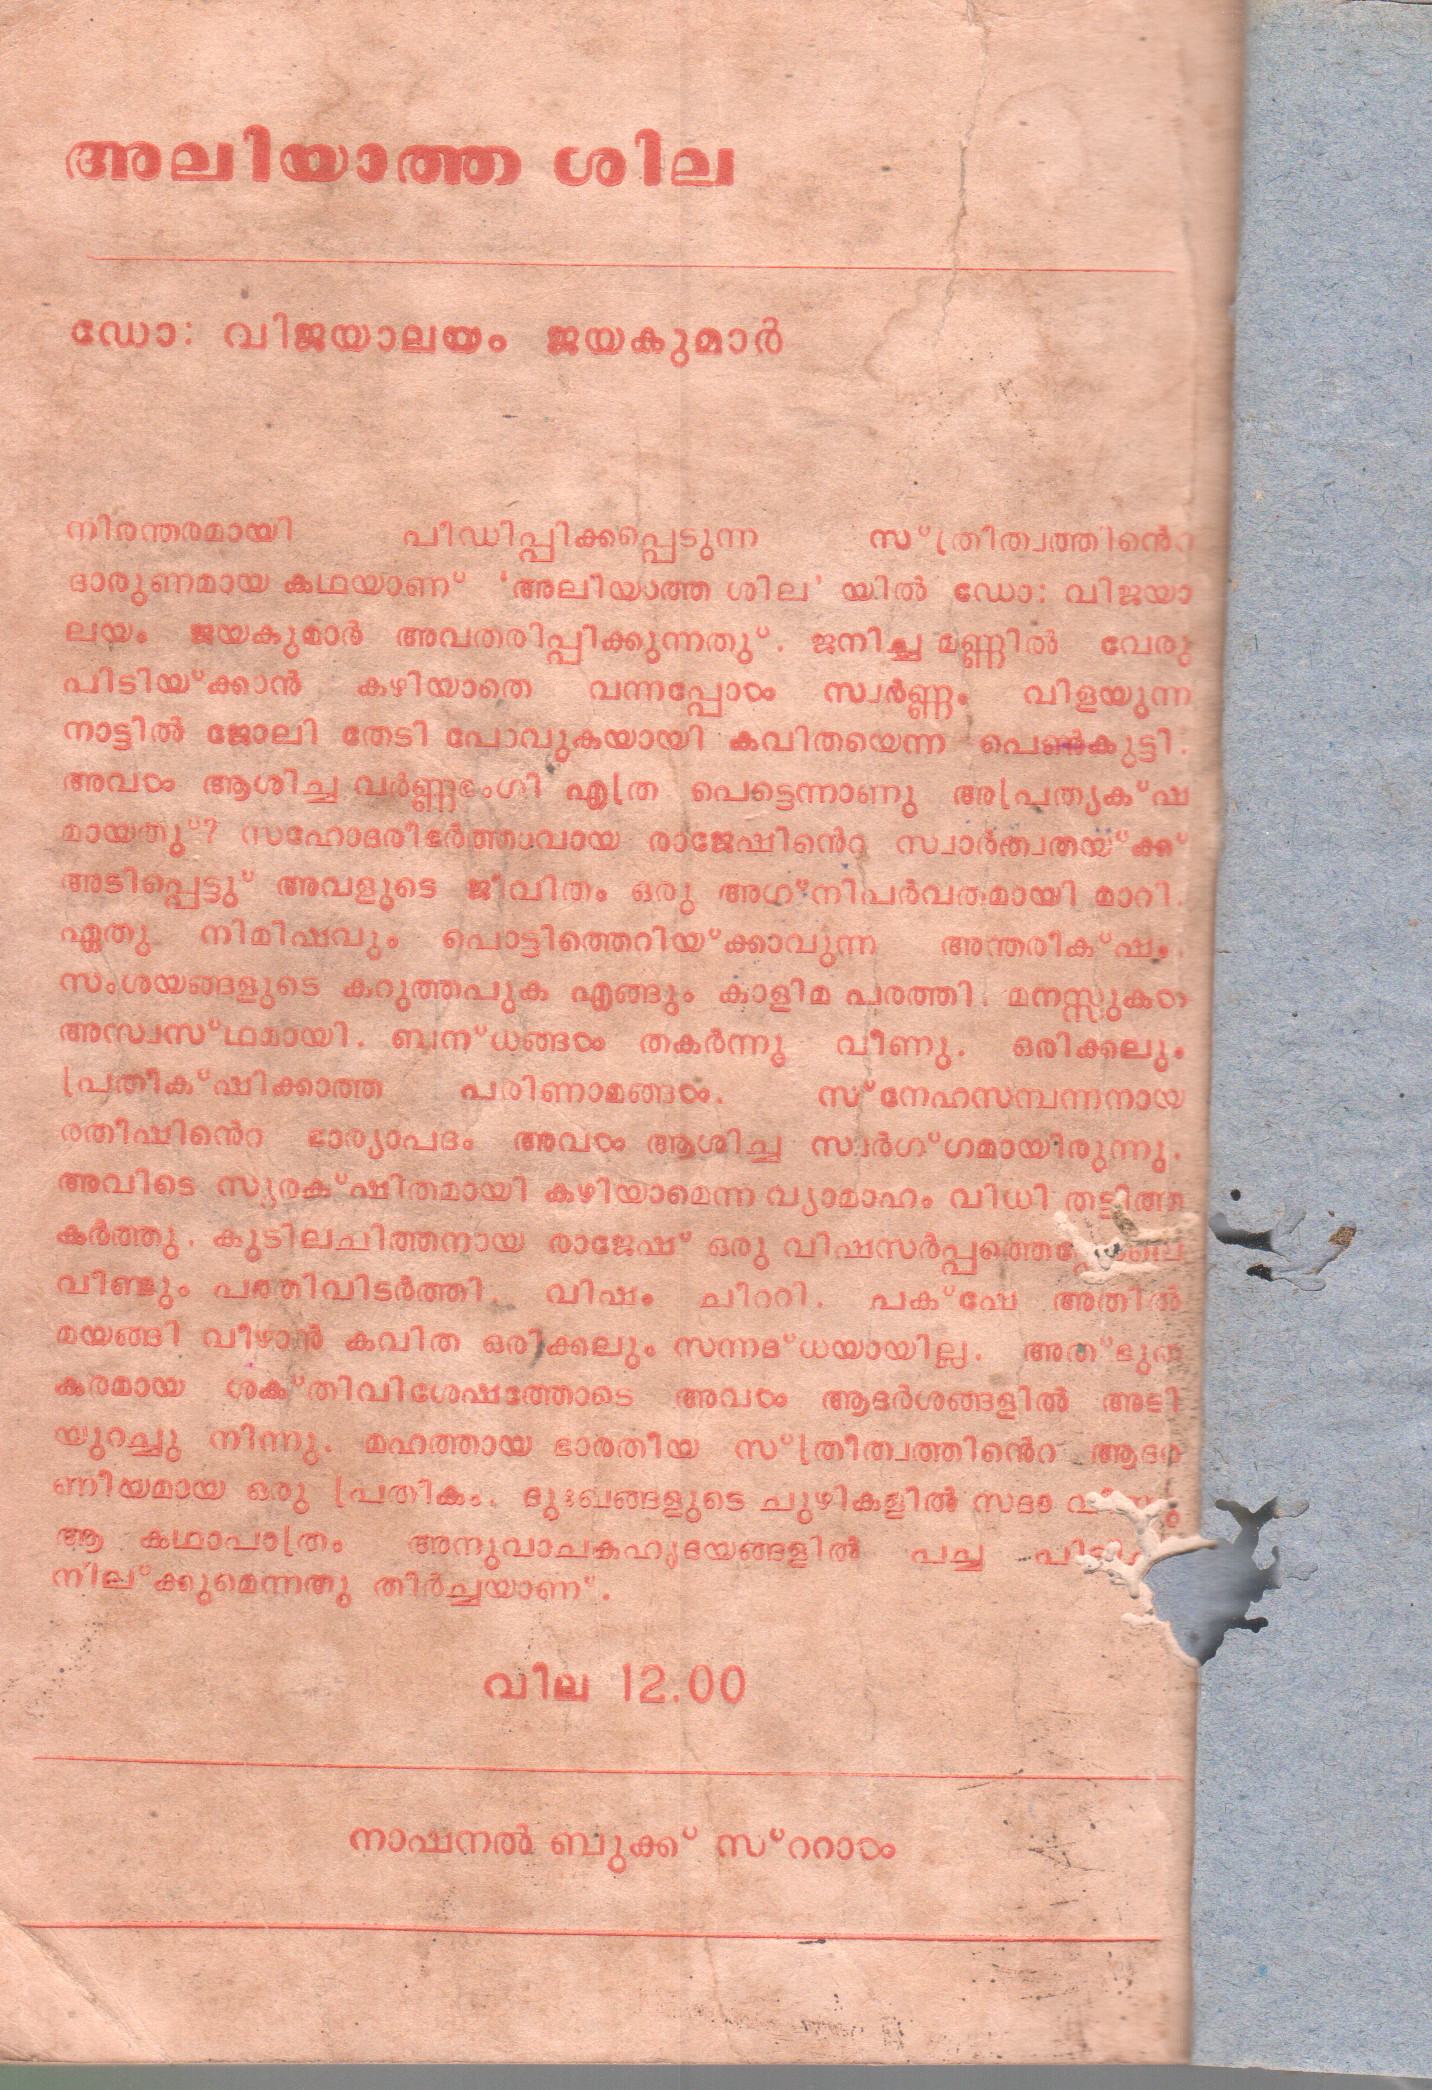 അലിയാത്ത ശില
ഡോ: വിജയാലയം ജയകുമാർ
നിരന്തരമായി പീഡിപ്പിക്കപ്പെടുന്ന സ്ത്രീത്വത്തിൻെറ
ദാരുണമായ കഥയാണ് ‘അലിയാത്ത ശില’ യിൽ ഡോ: വിജയാ
ലയം ജയകുമാർ അവതരിപ്പിക്കുന്നതു്. ജനിച്ച മണ്ണിൽ വേരു
പിടിയ്ക്കാൻ കഴിയാതെ വന്നപ്പോൾ സ്വർണ്ണം വിളയുന്ന
നാട്ടിൽ ജോലി തേടി പോവുകയായി കവിതയെന്ന പെൺകുട്ടി.
അവൾ ആശിച്ച വർണ്ണഭംഗി എത്ര പെട്ടെന്നാണു അപ്രത്യക്ഷ
മായതു്? സഹോദരീഭർത്താവായ രാജേഷിൻെറ സ്വാർത്ഥതയ്ക്ക്
അടിപ്പെട്ടു് അവളുടെ ജീവിതം ഒരു അഗ്നിപർവതമായി മാറി.
ഏതു നിമിഷവും പൊട്ടിത്തെറിയ്ക്കാവുന്ന അന്തരീക്ഷം.
സംശയങ്ങളുടെ കറുത്തപുക എങ്ങും കാളിമ പരത്തി. മനസ്സുകൾ
അസ്വസ്ഥമായി. ബന്ധങ്ങൾ തകർന്നു വീണു. ഒരിക്കലും
പ്രതീക്ഷിക്കാത്ത പരിണാമങ്ങൾ. സ്നേഹസമ്പന്നനായ
രതീഷിൻെറ ഭാര്യാപദം അവൾ ആശിച്ച സ്വർഗ്ഗമായിരുന്നു.
അവിടെ സുരക്ഷിതമായി കഴിയാമെന്ന വ്യാമോഹം വിധി തട്ടിത്ത
കർത്തു. കുടിലചിത്തനായ രാജേഷ് ഒരു വിഷസർപ്പത്തെപ്പോലെ
വീണ്ടും പത്തിവിടർത്തി. വിഷം ചീററി. പക്ഷേ അതിൽ
മയങ്ങി വീഴാൻ കവിത ഒരിക്കലും സന്നദ്ധയായില്ല. അത്ഭുത
കരമായ ശക്തിവിശേഷത്തോടെ അവൾ ആദർശങ്ങളിൽ അടി
യുറച്ചു നിന്നു. മഹത്തായ ഭാരതീയ സ്ത്രീത്വത്തിൻെറ ആദര
ണീയമായ ഒരു പ്രതീകം. ദുഃഖങ്ങളുടെ ചുഴികളിൽ സദാ
ആ കഥാപാത്രം അനുവാചകഹൃദയങ്ങളിൽ പച്ച
നില്ക്കുമെന്നതു തീർച്ചയാണ്.
വില 12.00
നാഷനൽ ബുക്ക് സ്ററാൾ